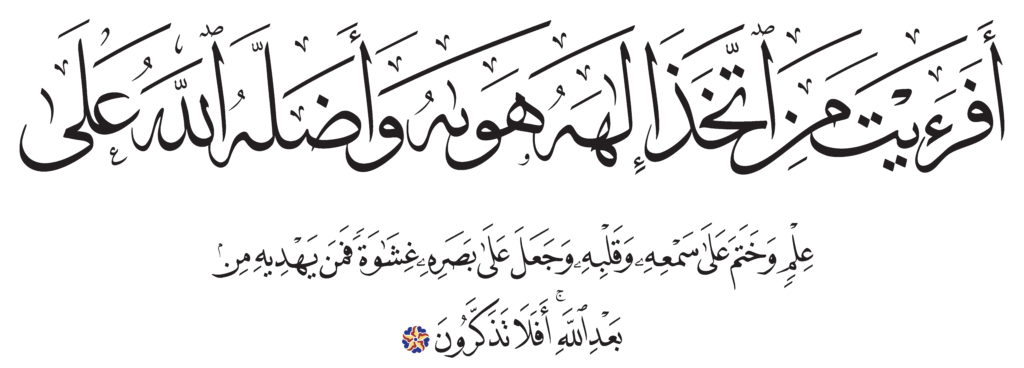 أَفَرَءَيْتَ مَنِ ٱتَّخَذَ إِلَٰهَهُۥ هَوَىٰهُ وَأَضَلَّهُ ٱللَّهُ عَلَىٰ
عِلْمٍ وَخَتَمَ عَلَىٰ سَمْعِهِۦ وَقَلْبِهِۦ وَجَعَلَ عَلَىٰ بَصَرِهِۦ غِشَٰوَةً فَمَن يَهْدِيهِ مِنۢ
بَعْدِ ٱللَّهِ ۚ أَفَلَا تَذَكَّرُونَ